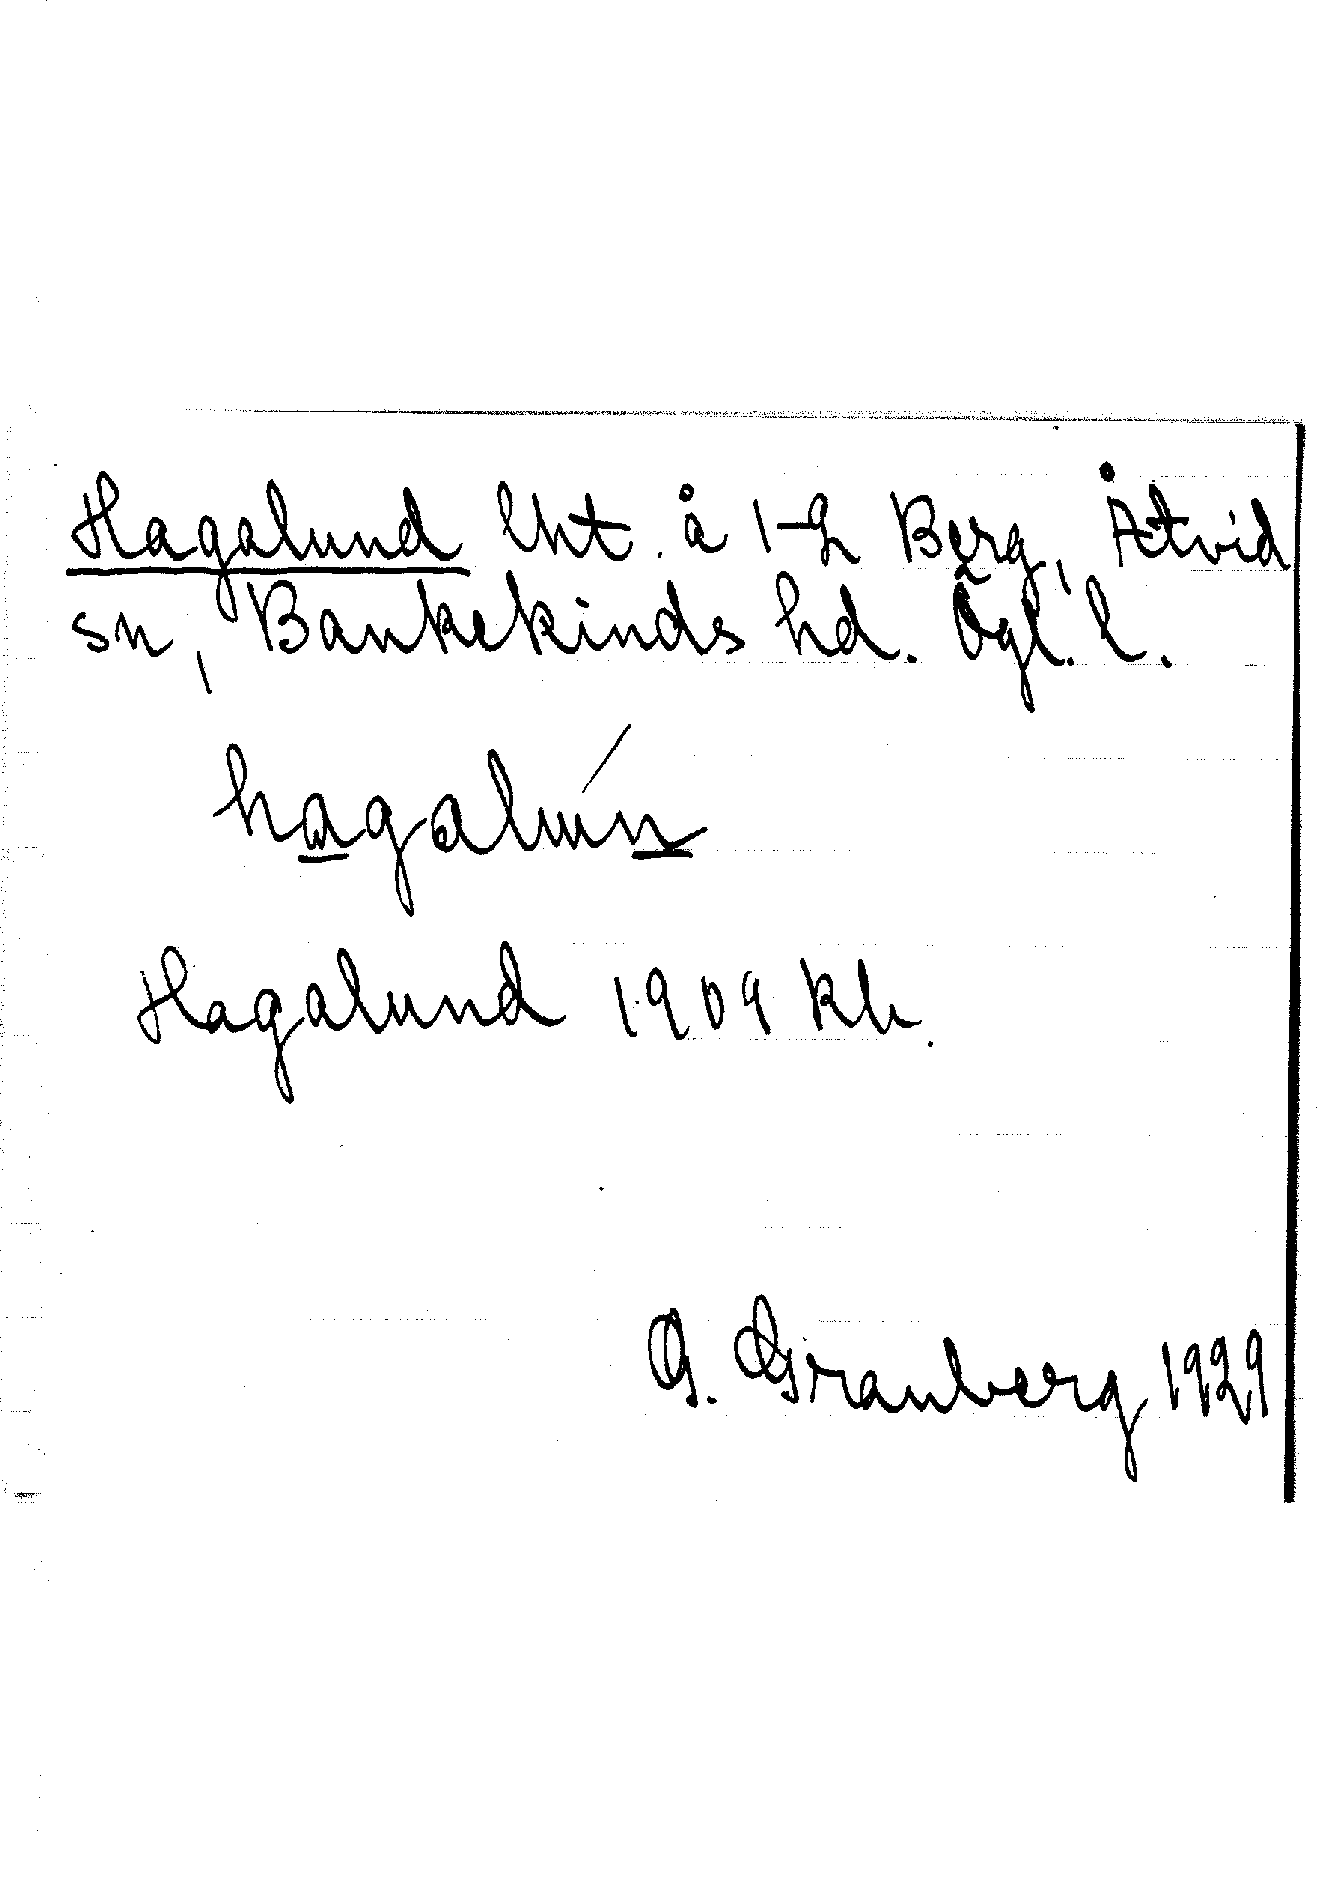 Hagalund lht. å 1-2 Berg, Åtvid
sn, Bankekinds hd. Ögl. l.
hagalún
Hagalund 1909 kb.
G. Granberg 1929